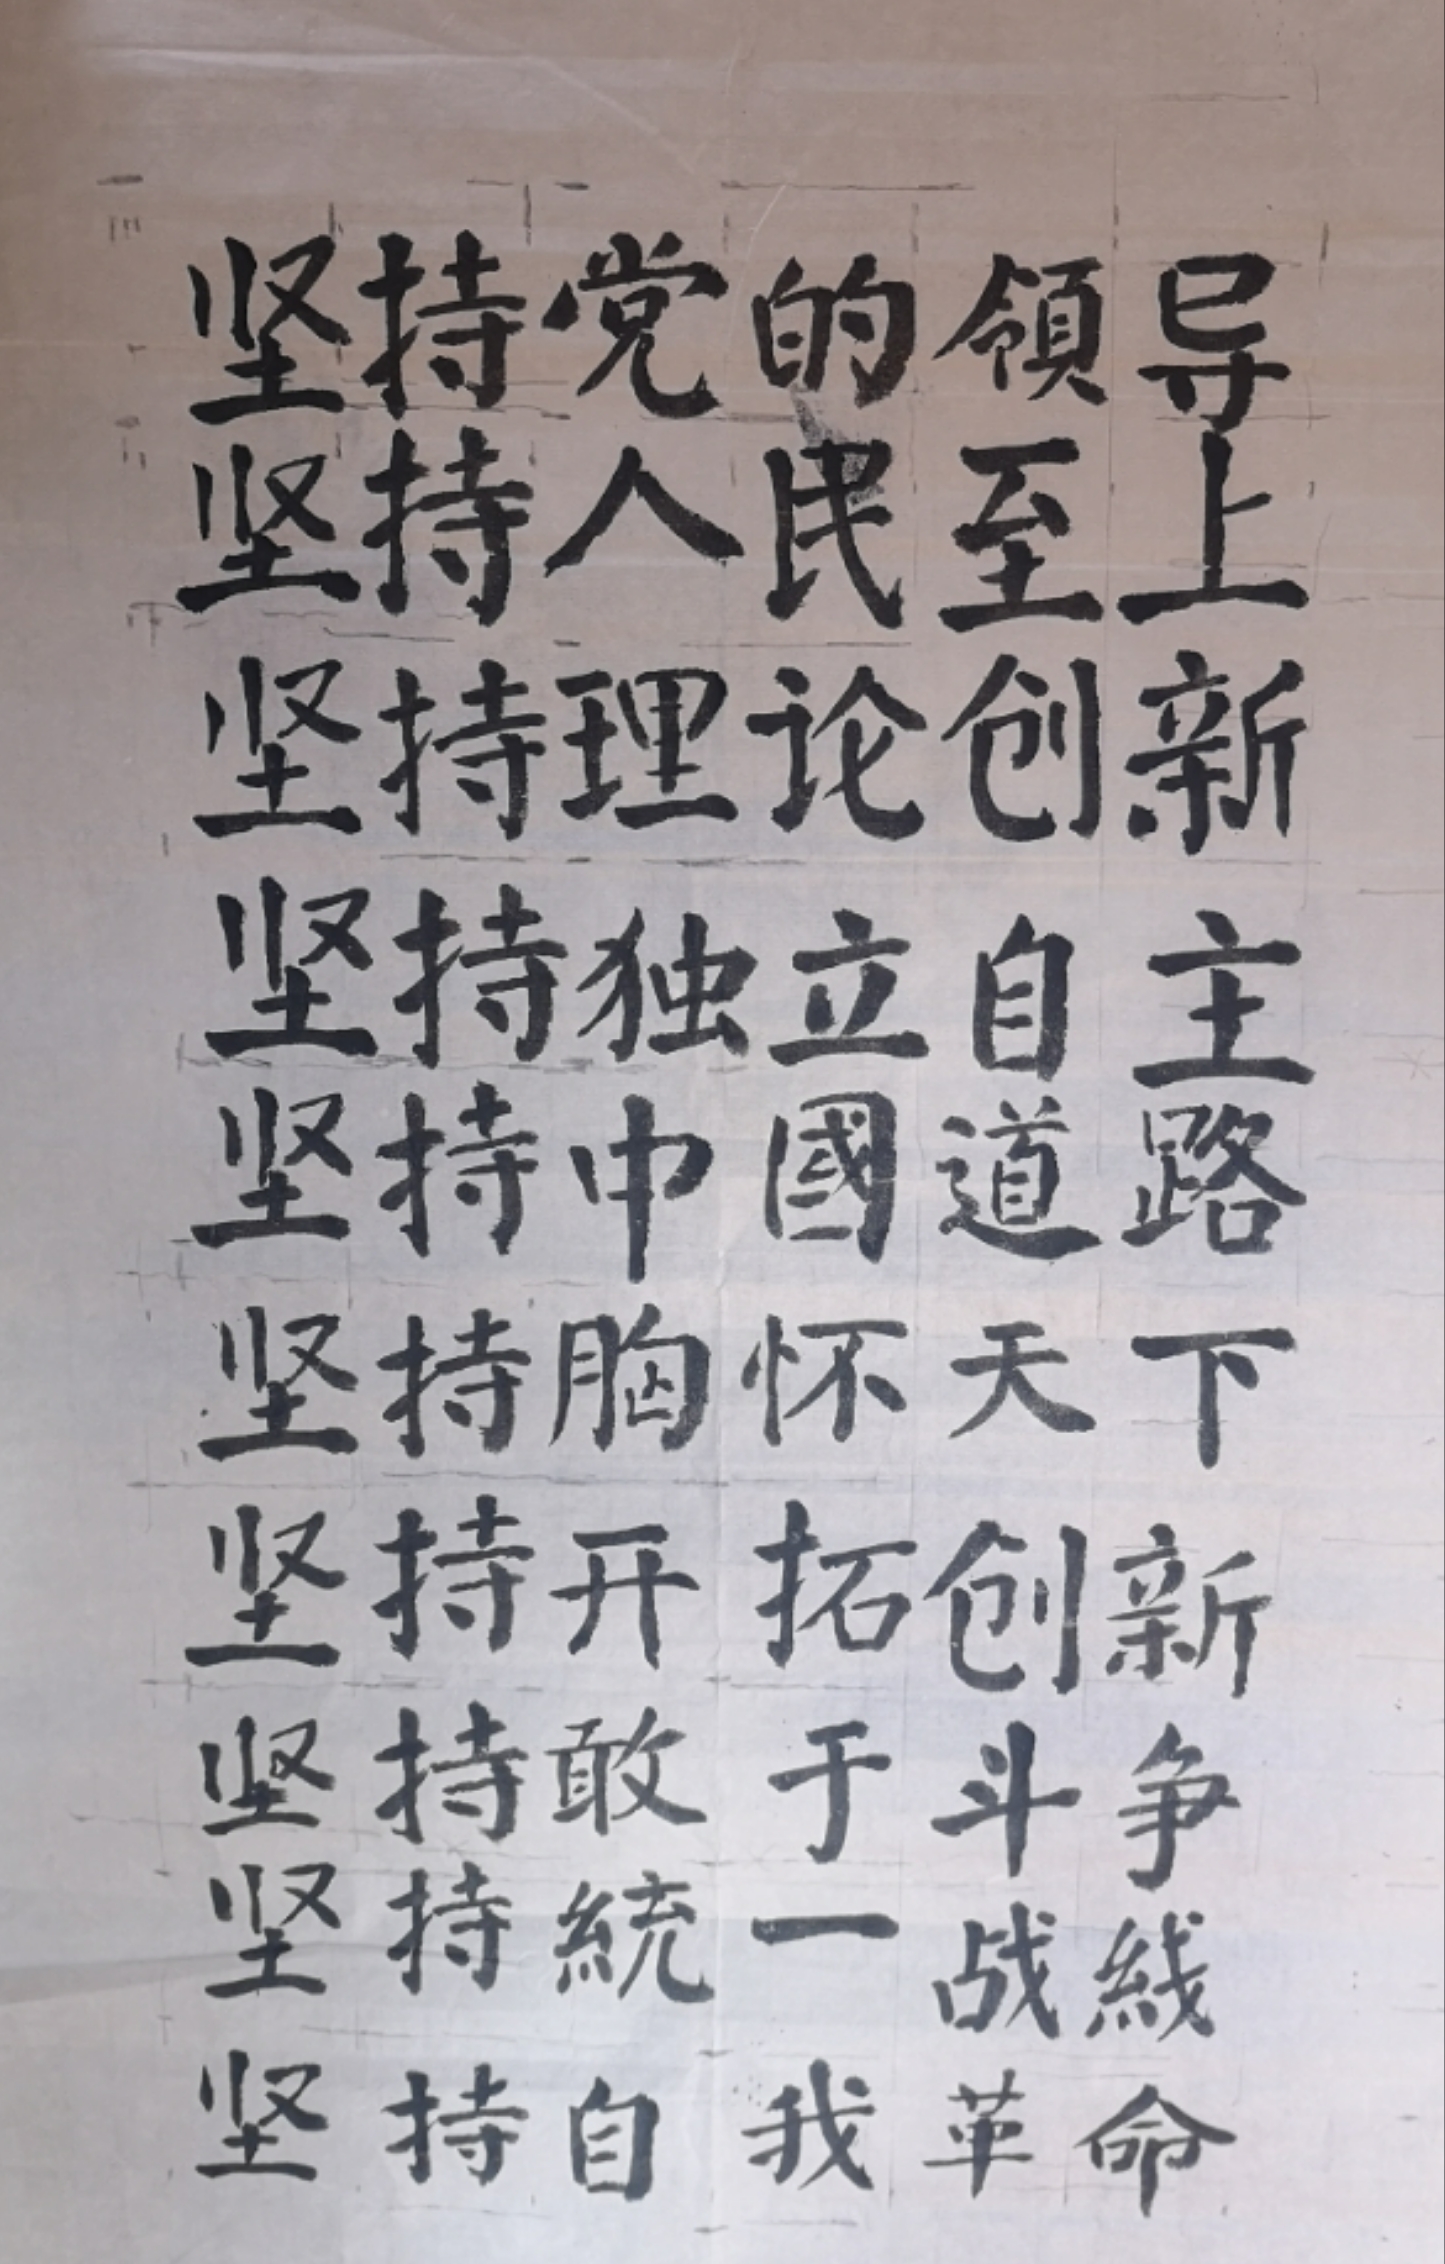 坚持党的領导
坚持人民至上
坚持理论创新
坚持独立自主
坚持中國道路
坚持胸怀天下
坚持开拓创新
坚持敢于斗争
坚持統一战綫
坚持自我革命